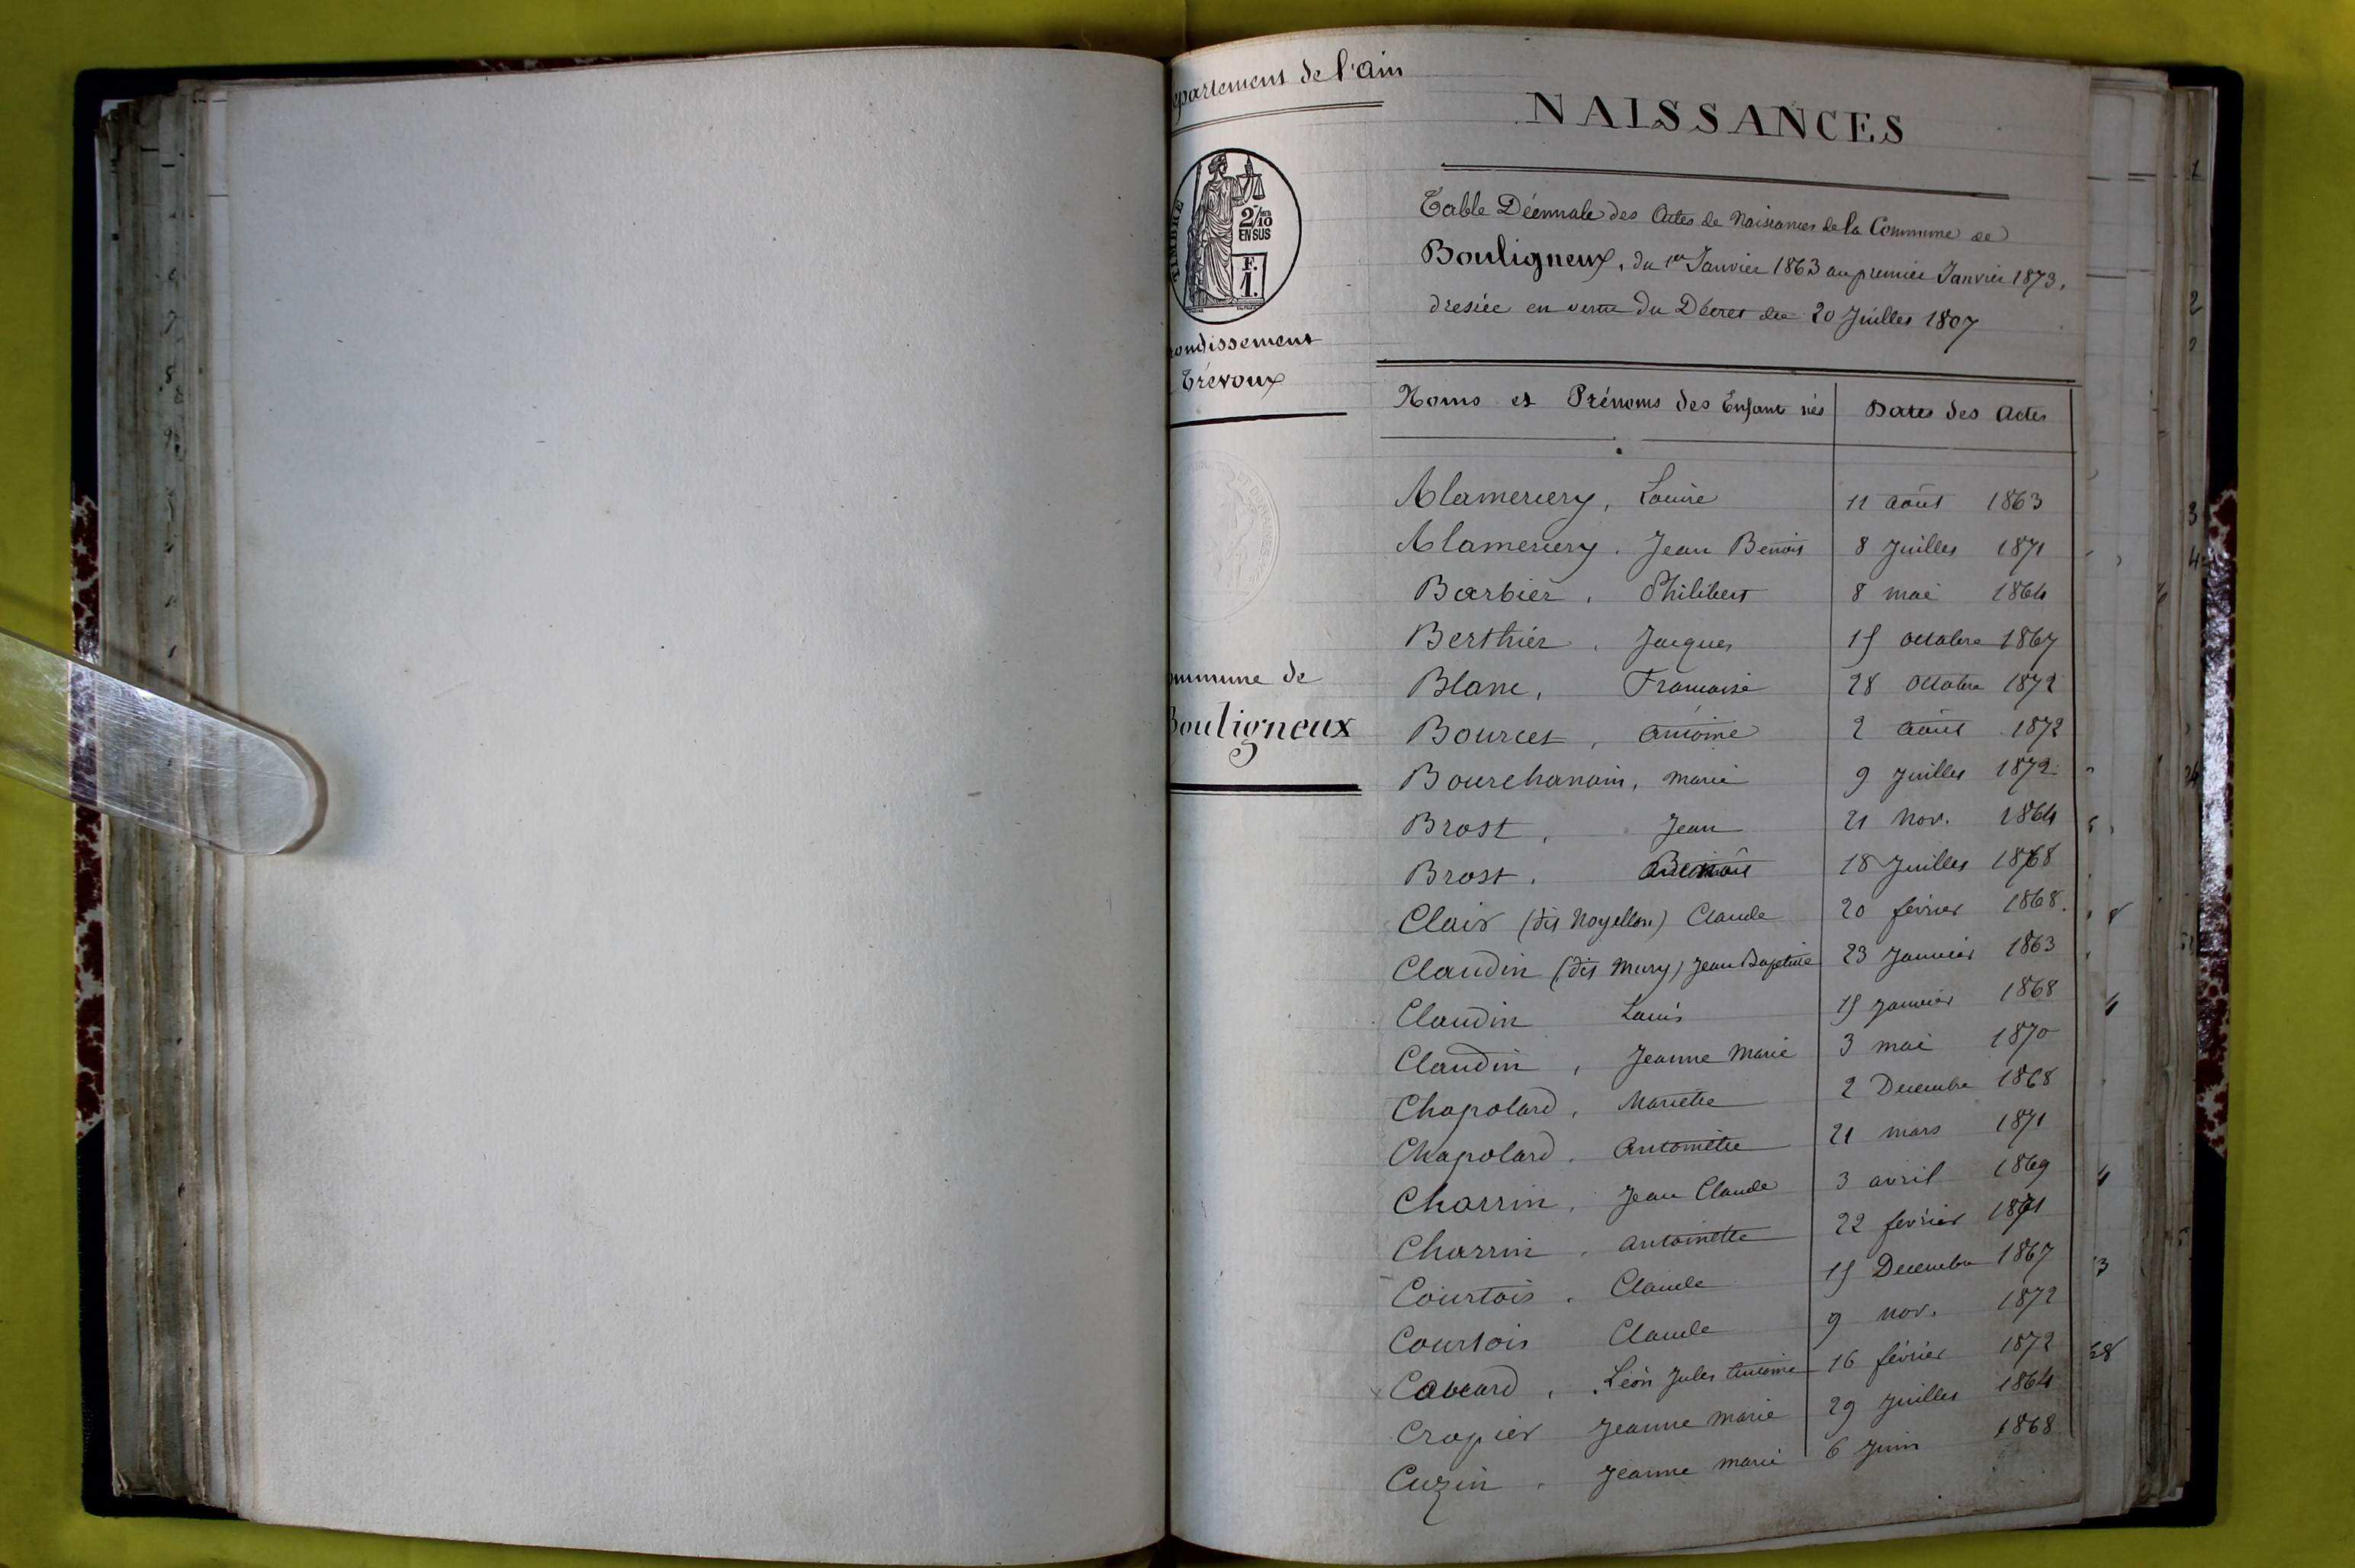 épartement de l'Ain
TIMBRE
2/10
EN SUS
F.
1.
ondissement
Trévoux
ommune de
Bouligneux
NAISSANCES
Table Décennale des Actes de Naissances de la Commune de
Bouligneux, du 1er Janvier 1863 au premier Janvier 1873,
dressée en vertu du Décret du 20 Juillet 1807
Noms et Prénoms des Enfant nés Dates des Actes
Alamercery, Louise 11 août 1863
Alamercery, Jean Benoit 8 Juillet 1871
Barbier, Philibert 8 mai 1864
Berthier, Jacques 15 octobre 1867
Blanc, Françoise 28 octobre 1872
Bourcet, Antoine 2 août 1872
Bourchanain, Marie 9 Juillet 1872
Brost, Jean 21 Nov. 1864
Brost, Benoit 18 Juillet 1868
Clair (dit Noyellon) Claude 20 février 1868.
Claudin (dit Mury) Jean Baptiste 23 Janvier 1863
Claudin Louis 15 Janvier 1868
Claudin, Jeanne Marie 3 mai 1870
Chapolard, Mariette 2 Decembre 1868
Chapolard, Antoinette 21 mars 1871
Charrin, Jean Claude 3 avril 1869
Charrin, Antoinette 22 février 1871
Courtois, Claude 15 Decembre 1867
Courtois Claude 9 nov. 1872
Léon Jules Antoine 16 février 1872
Cropier Jeanne Marie 29 Juillet 1864
Cuzin, Jeanne Marie 6 Juin 1868